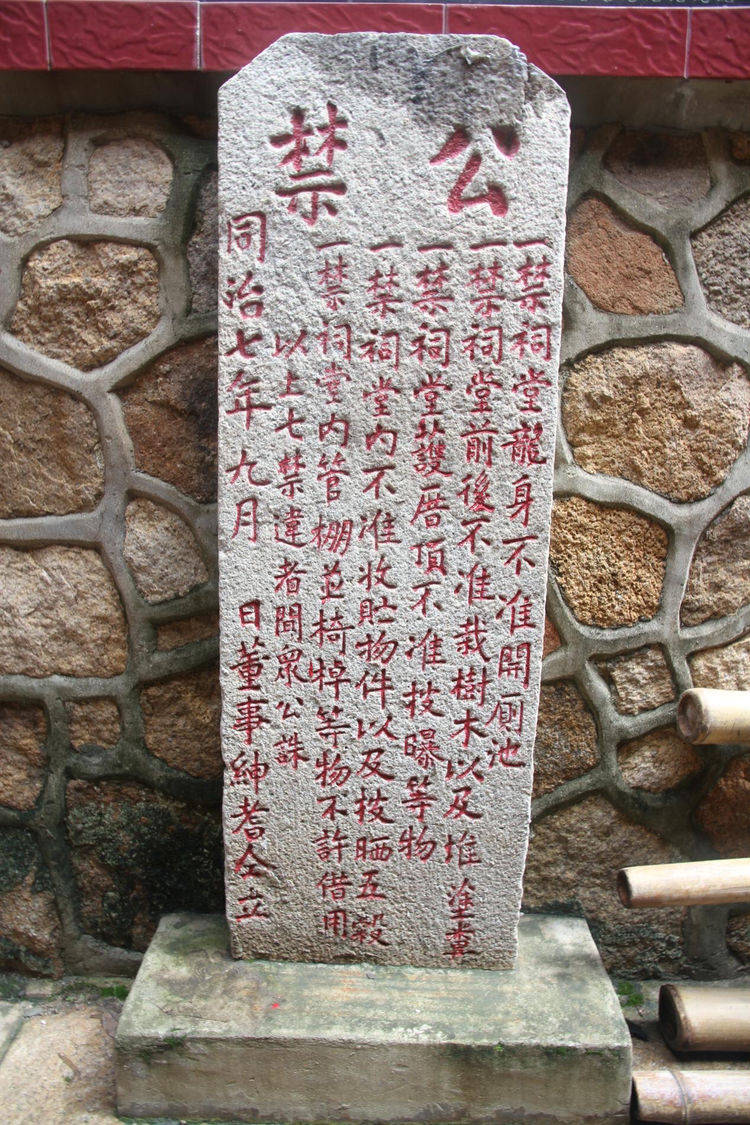 公禁
一禁祠堂龍身不准開廁池
一禁祠堂前後不准栽樹木以及堆塗糞
一禁祠堂護厝頂不准技曝等物
一禁祠堂内不准收貯物件以及技晒五榖
一禁祠堂内管棚並椅棹等物不許借用
以上七禁違者闔眾公誅
同治七年九月 日董事紳耆仝立